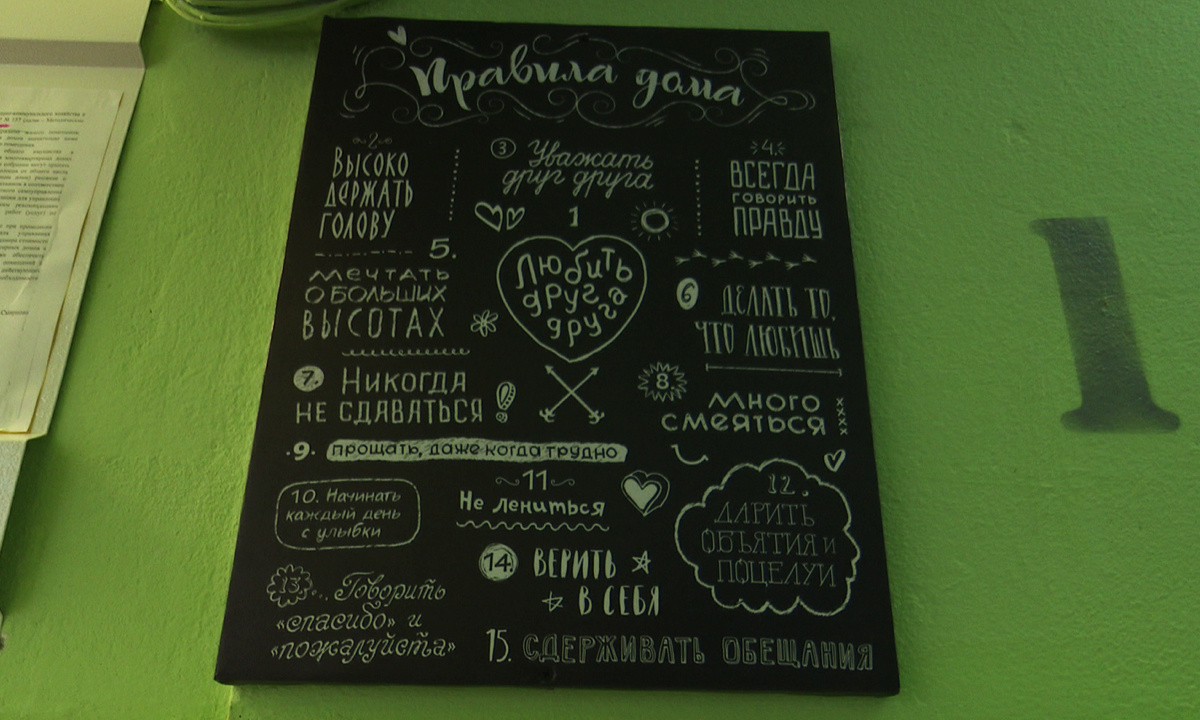 Правила дома
2
Высоко
держать
голову
3 Уважать
друг друга
4.
ВСЕГДА
ГОВОРИТЬ
ПРАВДУ
1
Любить
друг
друга
5.
мечтать
о больших
высотах
6 ДЕЛАТЬ ТО,
ЧТО ЛЮБИШЬ
7. Никогда
не сдаваться
8.
Много
смеяться
xxxx
.9. прощать, даже когда трудно
10. Начинать
каждый день
с улыбки
11
Не лениться
12.
ДАРИТЬ
ОБЪЯТИЯ и
ПОЦЕЛУИ
13... Говорить
«спасибо» и
«пожалуйста»
14 ВЕРИТЬ
В СЕБЯ
15. СДЕРЖИВАТЬ ОБЕЩАНИЯ
1